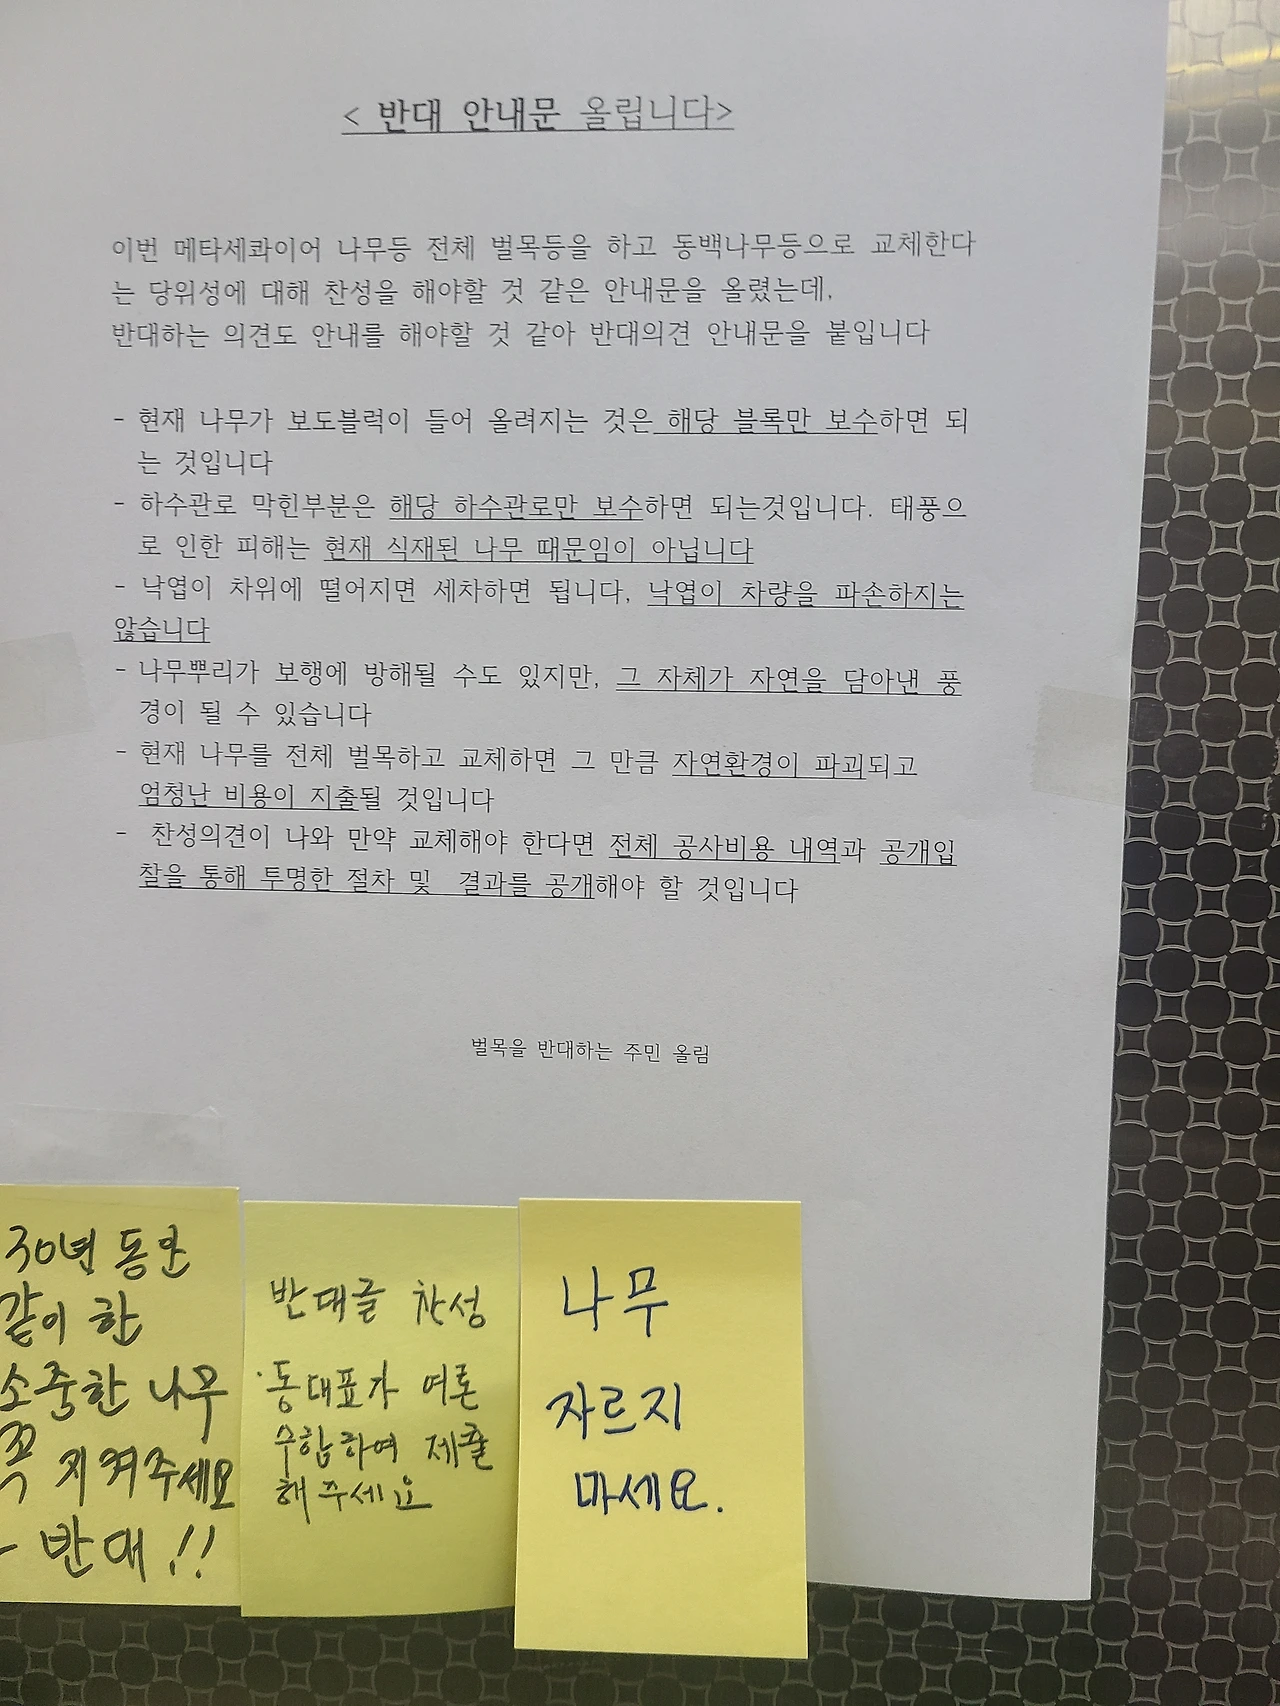 < 반대 안내문 올립니다>
이번 메타세콰이어 나무등 전체 벌목등을 하고 동백나무등으로 교체한다
는 당위성에 대해 찬성을 해야할 것 같은 안내문을 올렸는데,
반대하는 의견도 안내를 해야할 것 같아 반대의견 안내문을 붙입니다
- 현재 나무가 보도블럭이 들어 올려지는 것은 해당 블록만 보수하면 되
는 것입니다
- 하수관로 막힌부분은 해당 하수관로만 보수하면 되는것입니다. 태풍으
로 인한 피해는 현재 식재된 나무 때문임이 아닙니다
- 낙엽이 차위에 떨어지면 세차하면 됩니다, 낙엽이 차량을 파손하지는
않습니다
- 나무뿌리가 보행에 방해될 수도 있지만, 그 자체가 자연을 담아낸 풍
경이 될 수 있습니다
- 현재 나무를 전체 벌목하고 교체하면 그 만큼 자연환경이 파괴되고
엄청난 비용이 지출될 것입니다
- 찬성의견이 나와 만약 교체해야 한다면 전체 공사비용 내역과 공개입
찰을 통해 투명한 절차 및 결과를 공개해야 할 것입니다
벌목을 반대하는 주민 올림
30년 동안
같이 한
소중한 나무
꼭 지켜주세요
- 반대!!
반대글 찬성
·동대표가 여론
수합하여 제출
해주세요
나무
자르지
마세요.